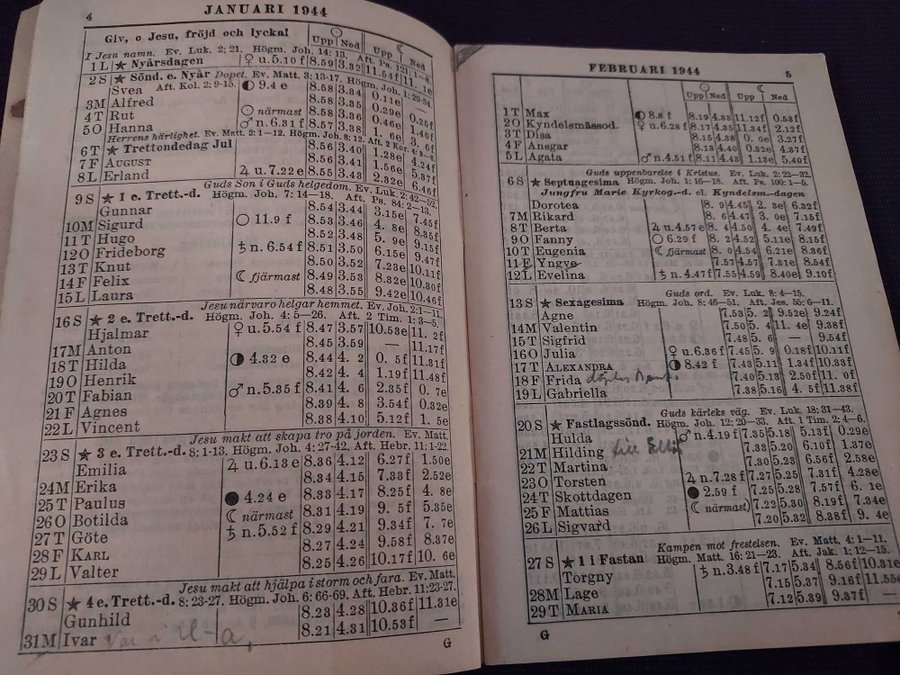 4
JANUARI 1944
Giv, o Jesu, fröjd och lycka!
Upp Ned Upp Ned
I Jesu namn. Ev. Luk. 2; 21. Högm. Joh. 14; 13. Aft. Ps. 121; 1—8.
1 L ★ Nyårsdagen ♀ u. 5.10 f 8.59 3.32 11.54f 11. 1e
2 S ★ Sönd. e. Nyår Dopet. Ev. Matt. 3; 13-17. Högm. Joh. 1; 29-34.
Svea Aft. Kol. 2; 9-15. ◐ 9.4 e 8.58 3.34 0.11e —
3M Alfred 8.58 3.35 0.29e
4T Rut ☉ närmast 8.58 3.36 0.46e
5O Hanna ♂ n. 6.31 f 8.57 3.38 1. 6e
Herrens härlighet. Ev. Matt. 2; 1—12. Högm. Joh. 8; 12.
6T ★ Trettondedag Jul 8.56 3.40 1.28e 4.24f
7 F AUGUST 8.56 3.41 1.56e 5.37f
8 L Erland ♃ u. 7.22 e 8.55 3.43 2.32e 6.46f
Guds Son i Guds helgedom. Ev. Luk. 2; 42—52.
9 S ★ 1 e. Trett.-d. Högm. Joh. 7; 14—18. Aft. Ps. 84; 2—13.
Gunnar 8.54 3.44 3.15e 7.45f
10M Sigurd ○ 11.9 f 8.53 3.46 4. 8e 8.35f
11 T Hugo 8.52 3.48 5. 9e 9.15f
12O Frideborg ♄ n. 6.54 f 8.51 3.50 6.15e 9.47f
13T Knut 8.50 3.52 7.23e 10.11f
14 F Felix ☾ fjärmast 8.49 3.53 8.32e 10.30f
15 L Laura 8.48 3.55 9.42e 10.46f
Jesu närvaro helgar hemmet. Ev. Joh. 2; 1—11.
16 S ★ 2 e. Trett.-d. Högm. Joh. 4; 5—26. Aft. 2 Tim. 1; 3—5.
Hjalmar ♀ u. 5.54 f 8.47 3.57 10.53e 11. 2f
17M Anton 8.45 3.59 — 11.17f
18T Hilda ◑ 4.32 e 8.44 4. 2 0. 5f 11.31f
19O Henrik 8.42 4. 4 1.19f 11.48f
20T Fabian ♂ n. 5.35 f 8.41 4. 6 2.35f 0. 7e
21 F Agnes 8.39 4. 8 3.54f 0.32e
22 L Vincent 8.38 4.10 5.12f 1. 5e
Jesu makt att skapa tro på jorden. Ev. Matt.
23 S ★ 3 e. Trett.-d. 8; 1-13. Högm. Joh. 4; 27-42. Aft. Hebr. 11; 1-22.
Emilia ♃ u. 6.18 e 8.36 4.12 6.27f 1.50e
24M Erika 8.34 4.15 7.33f 2.52e
25T Paulus ● 4.24 e 8.33 4.17 8.25f 4. 8e
26O Botilda ☾ närmast 8.31 4.19 9. 5f 5.35e
27T Göte ♄ n. 5.52 f 8.29 4.21 9.34f 7. 7e
28 F KARL 8.27 4.24 9.58f 8.37e
29 L Valter 8.25 4.26 10.17f 10. 6e
Jesu makt att hjälpa i storm och fara. Ev. Matt.
30 S ★ 4 e. Trett.-d. 8; 23-27. Högm. Joh. 6; 66-69. Aft. Hebr. 11; 23-27.
Gunhild 8.23 4.28 10.36f 11.31e
31M Ivar 8.21 4.31 10.53f —
G
FEBRUARI 1944
5
Upp Ned Upp Ned
1T Max ◐ 8.8 f 8.19 4.33 11.12f 0.53f
2O Kyndelsmässod. ♀ u. 6.28 f 8.17 4.35 11.34f 2.12f
3T Disa 8.15 4.38 0. 0e 3.27f
4F Ansgar 8.13 4.40 0.32e 4.37f
5L Agata ♂ n. 4.51 f 8.11 4.43 1.13e 5.40f
Guds uppenbarelse i Kristus. Ev. Luk. 2; 22—32.
6S ★ Septuagesima Högm. Joh. 1; 16—18. Aft. Ps. 100; 1—5.
Jungfru Marie Kyrkog.-d. el. Kyndelsm.-dagen
Dorotea 8. 9 4.45 2. 3e 6.32f
7M Rikard 8. 6 4.47 3. 0e 7.15f
8T Berta ♃ u. 4.57 e 8. 4 4.50 4. 4e 7.49f
9O Fanny ○ 6.29 f 8. 2 4.52 5.11e 8.15f
10T Eugenia ☾ fjärmast 8. 0 4.54 6.21e 8.36f
11F Yngve 7.57 4.57 7.31e 8.54f
12L Evelina ♄ n. 4.47 f 7.55 4.59 8.40e 9.10f
Guds ord. Ev. Luk. 8; 4—15.
13S ★ Sexagesima Högm. Joh. 8; 46—51. Aft. Jes. 55; 6—11.
Agne 7.53 5. 2 9.52e 9.24f
14M Valentin 7.50 5. 4 11. 4e 9.38f
15T Sigfrid 7.48 5. 6 — 9.54f
16O Julia ♀ u. 6.36 f 7.45 5. 9 0.18f 10.11f
17T ALEXANDRA ◑ 8.42 f 7.43 5.11 1.34f 10.33f
18F Frida 7.40 5.13 2.50f 11. 0f
19L Gabriella 7.38 5.16 4. 5f 11.38f
Guds kärleks väg. Ev. Luk. 18; 31—43.
20S ★ Fastlagssönd. Högm. Joh. 12; 20—33. Aft. 1 Tim. 2; 4—6.
Hulda ♂ n. 4.19 f 7.35 5.18 5.13f 0.29e
21M Hilding till 7.33 5.20 6.10f 1.37e
22T Martina 7.30 5.23 6.56f 2.58e
23O Torsten ♃ n. 7.28 f 7.27 5.25 7.31f 4.28e
24T Skottdagen ● 2.59 f 7.25 5.28 7.57f 6. 1e
25F Mattias ☾ närmast) 7.22 5.30 8.19f 7.34e
26L Sigvard 7.20 5.32 8.38f 9. 4e
Kampen mot frestelsen. Ev. Matt. 4; 1—11.
27S ★ 1 i Fastan Högm. Matt. 16; 21—23. Aft. Jak. 1; 12—15.
Torgny ♄ n. 3.48 f 7.17 5.34 8.56f 10.31e
28M Lage 7.15 5.37 9.16f 11.55e
29T MARIA 7.12 5.39 9.37f —
G